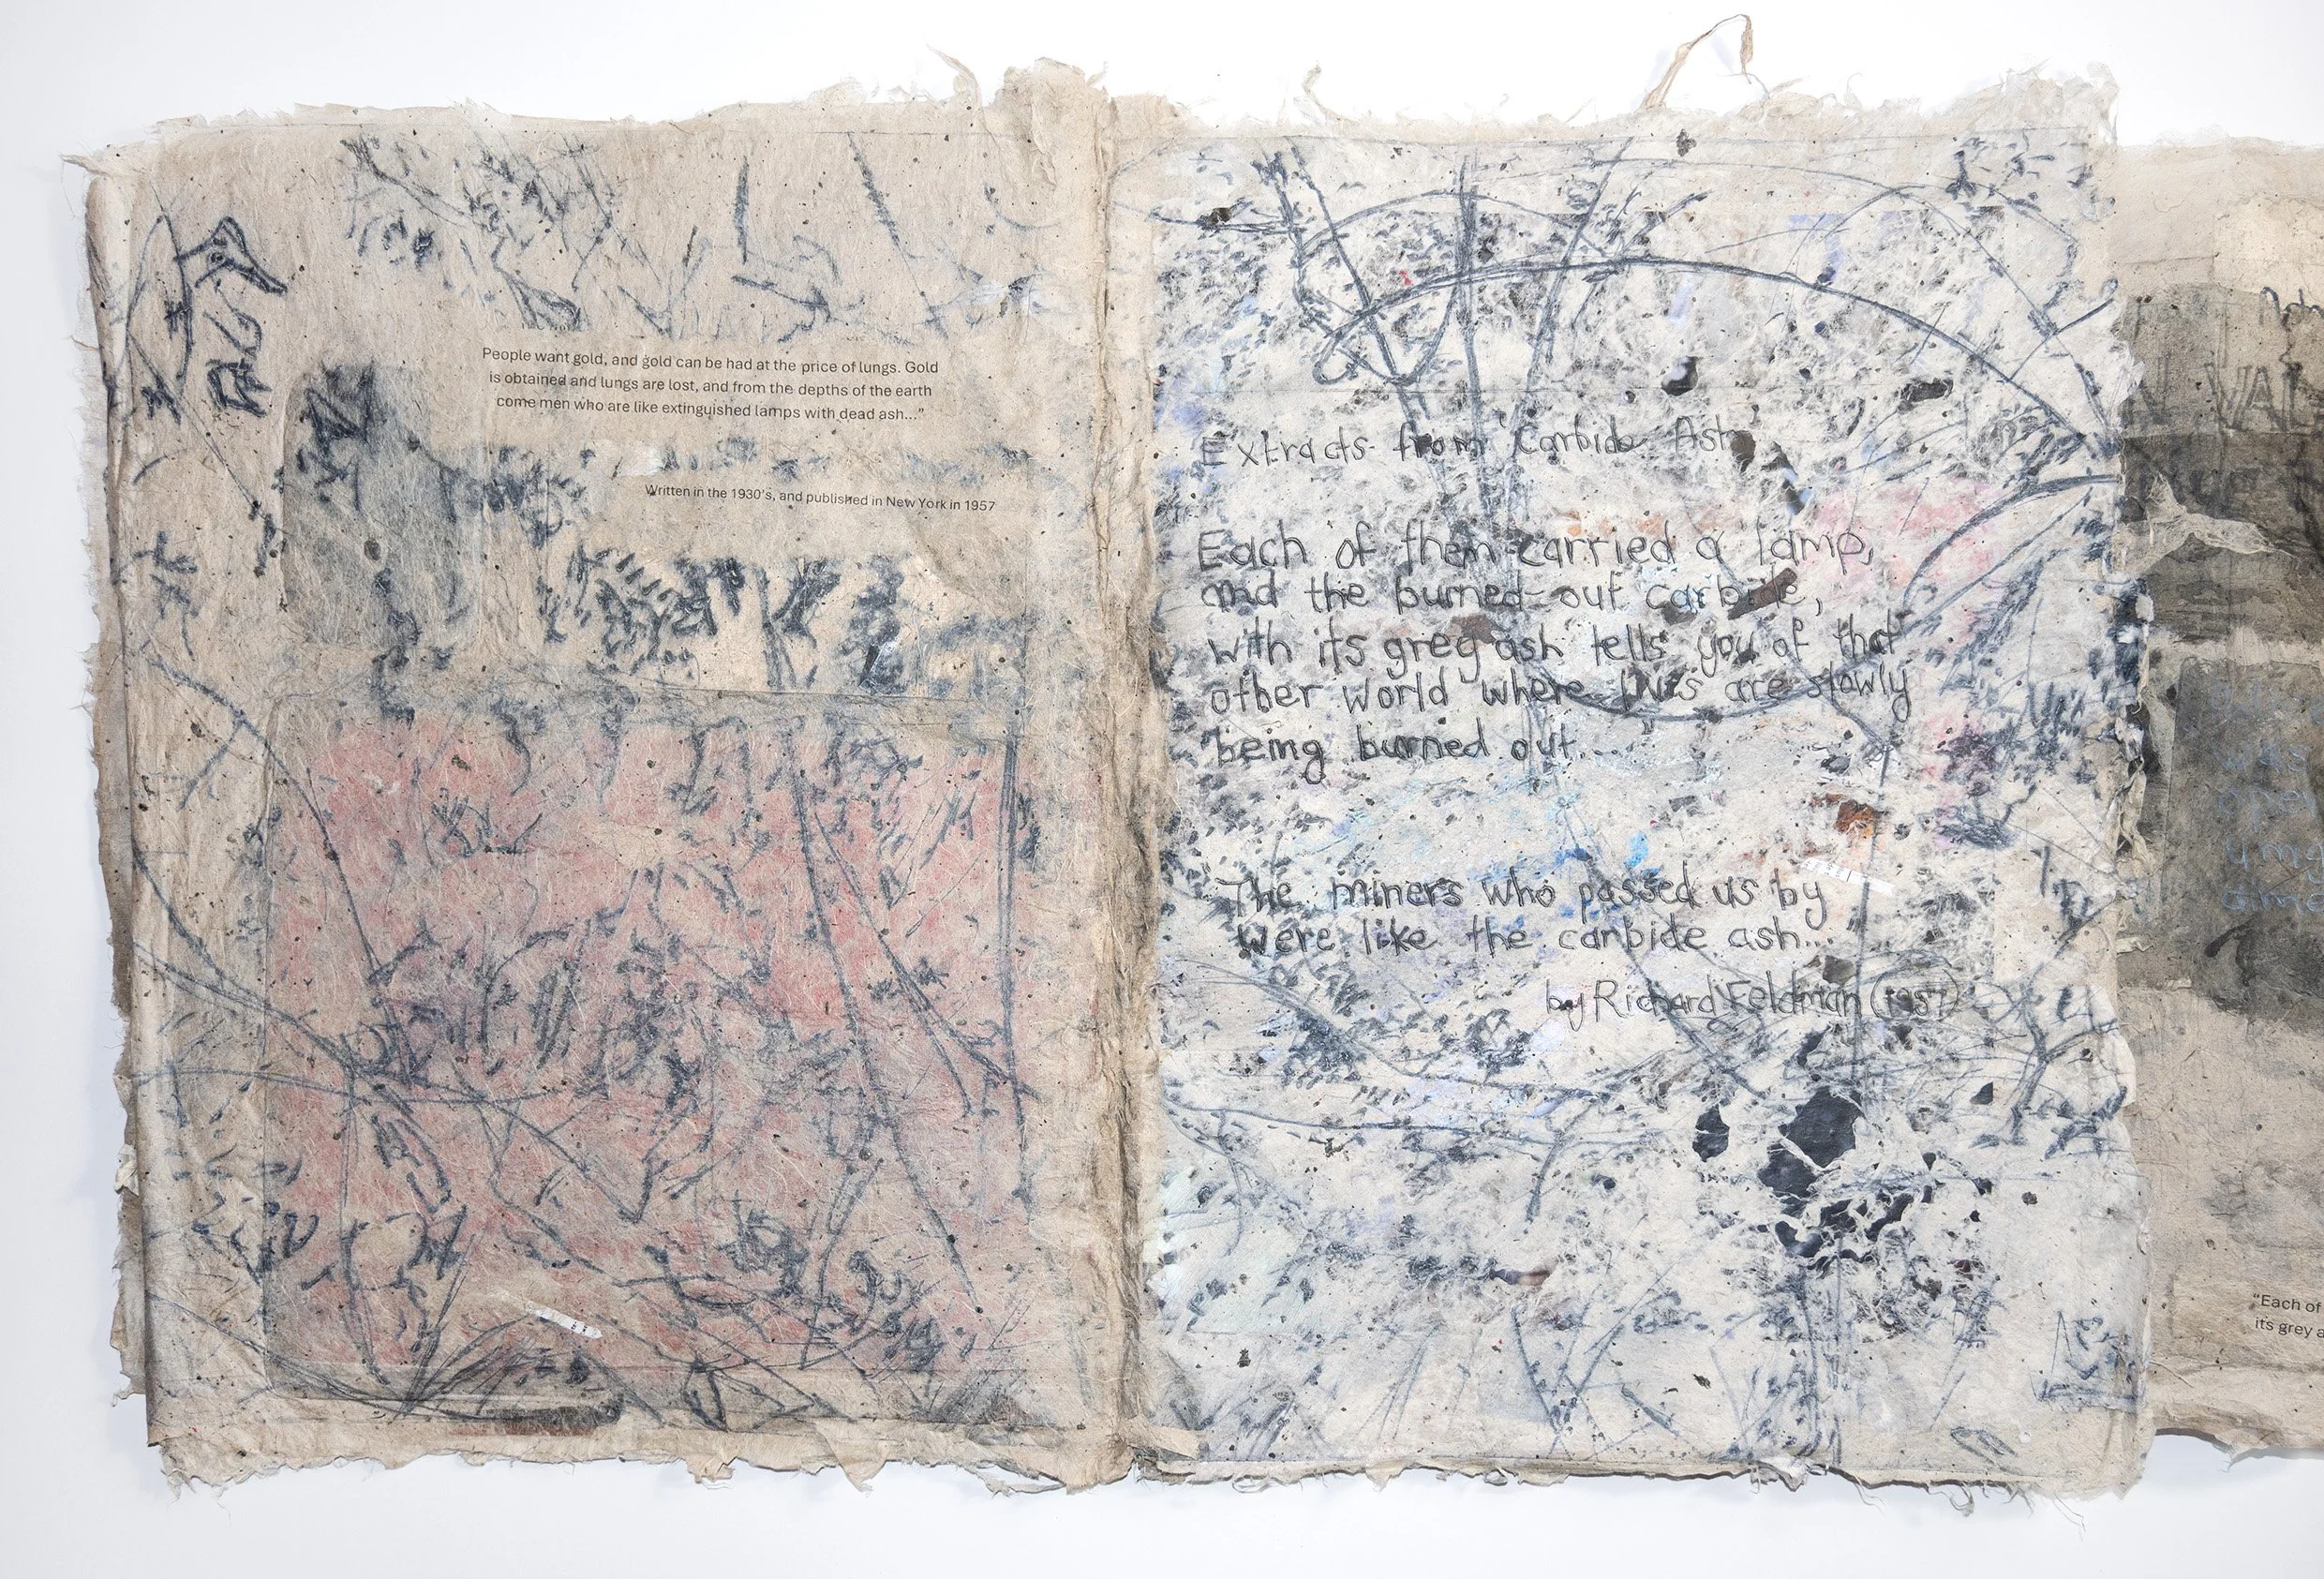 People want gold, and gold can be had at the price of lungs. Gold
is obtained and lungs are lost, and from the depths of the earth
come men who are like extinguished lamps with dead ash..."
Written in the 1930's, and published in New York in 1957
Extracts from 'Carbide Ash
Each of them carried a lamp,
and the burned-out carbide,
with its grey ash tells you of that
other world where lives are slowly
being burned out...
"The miners who passed us by
were like the carbide ash...
by Richard Feldman (1957)
VAN
was
"Each of
its grey a